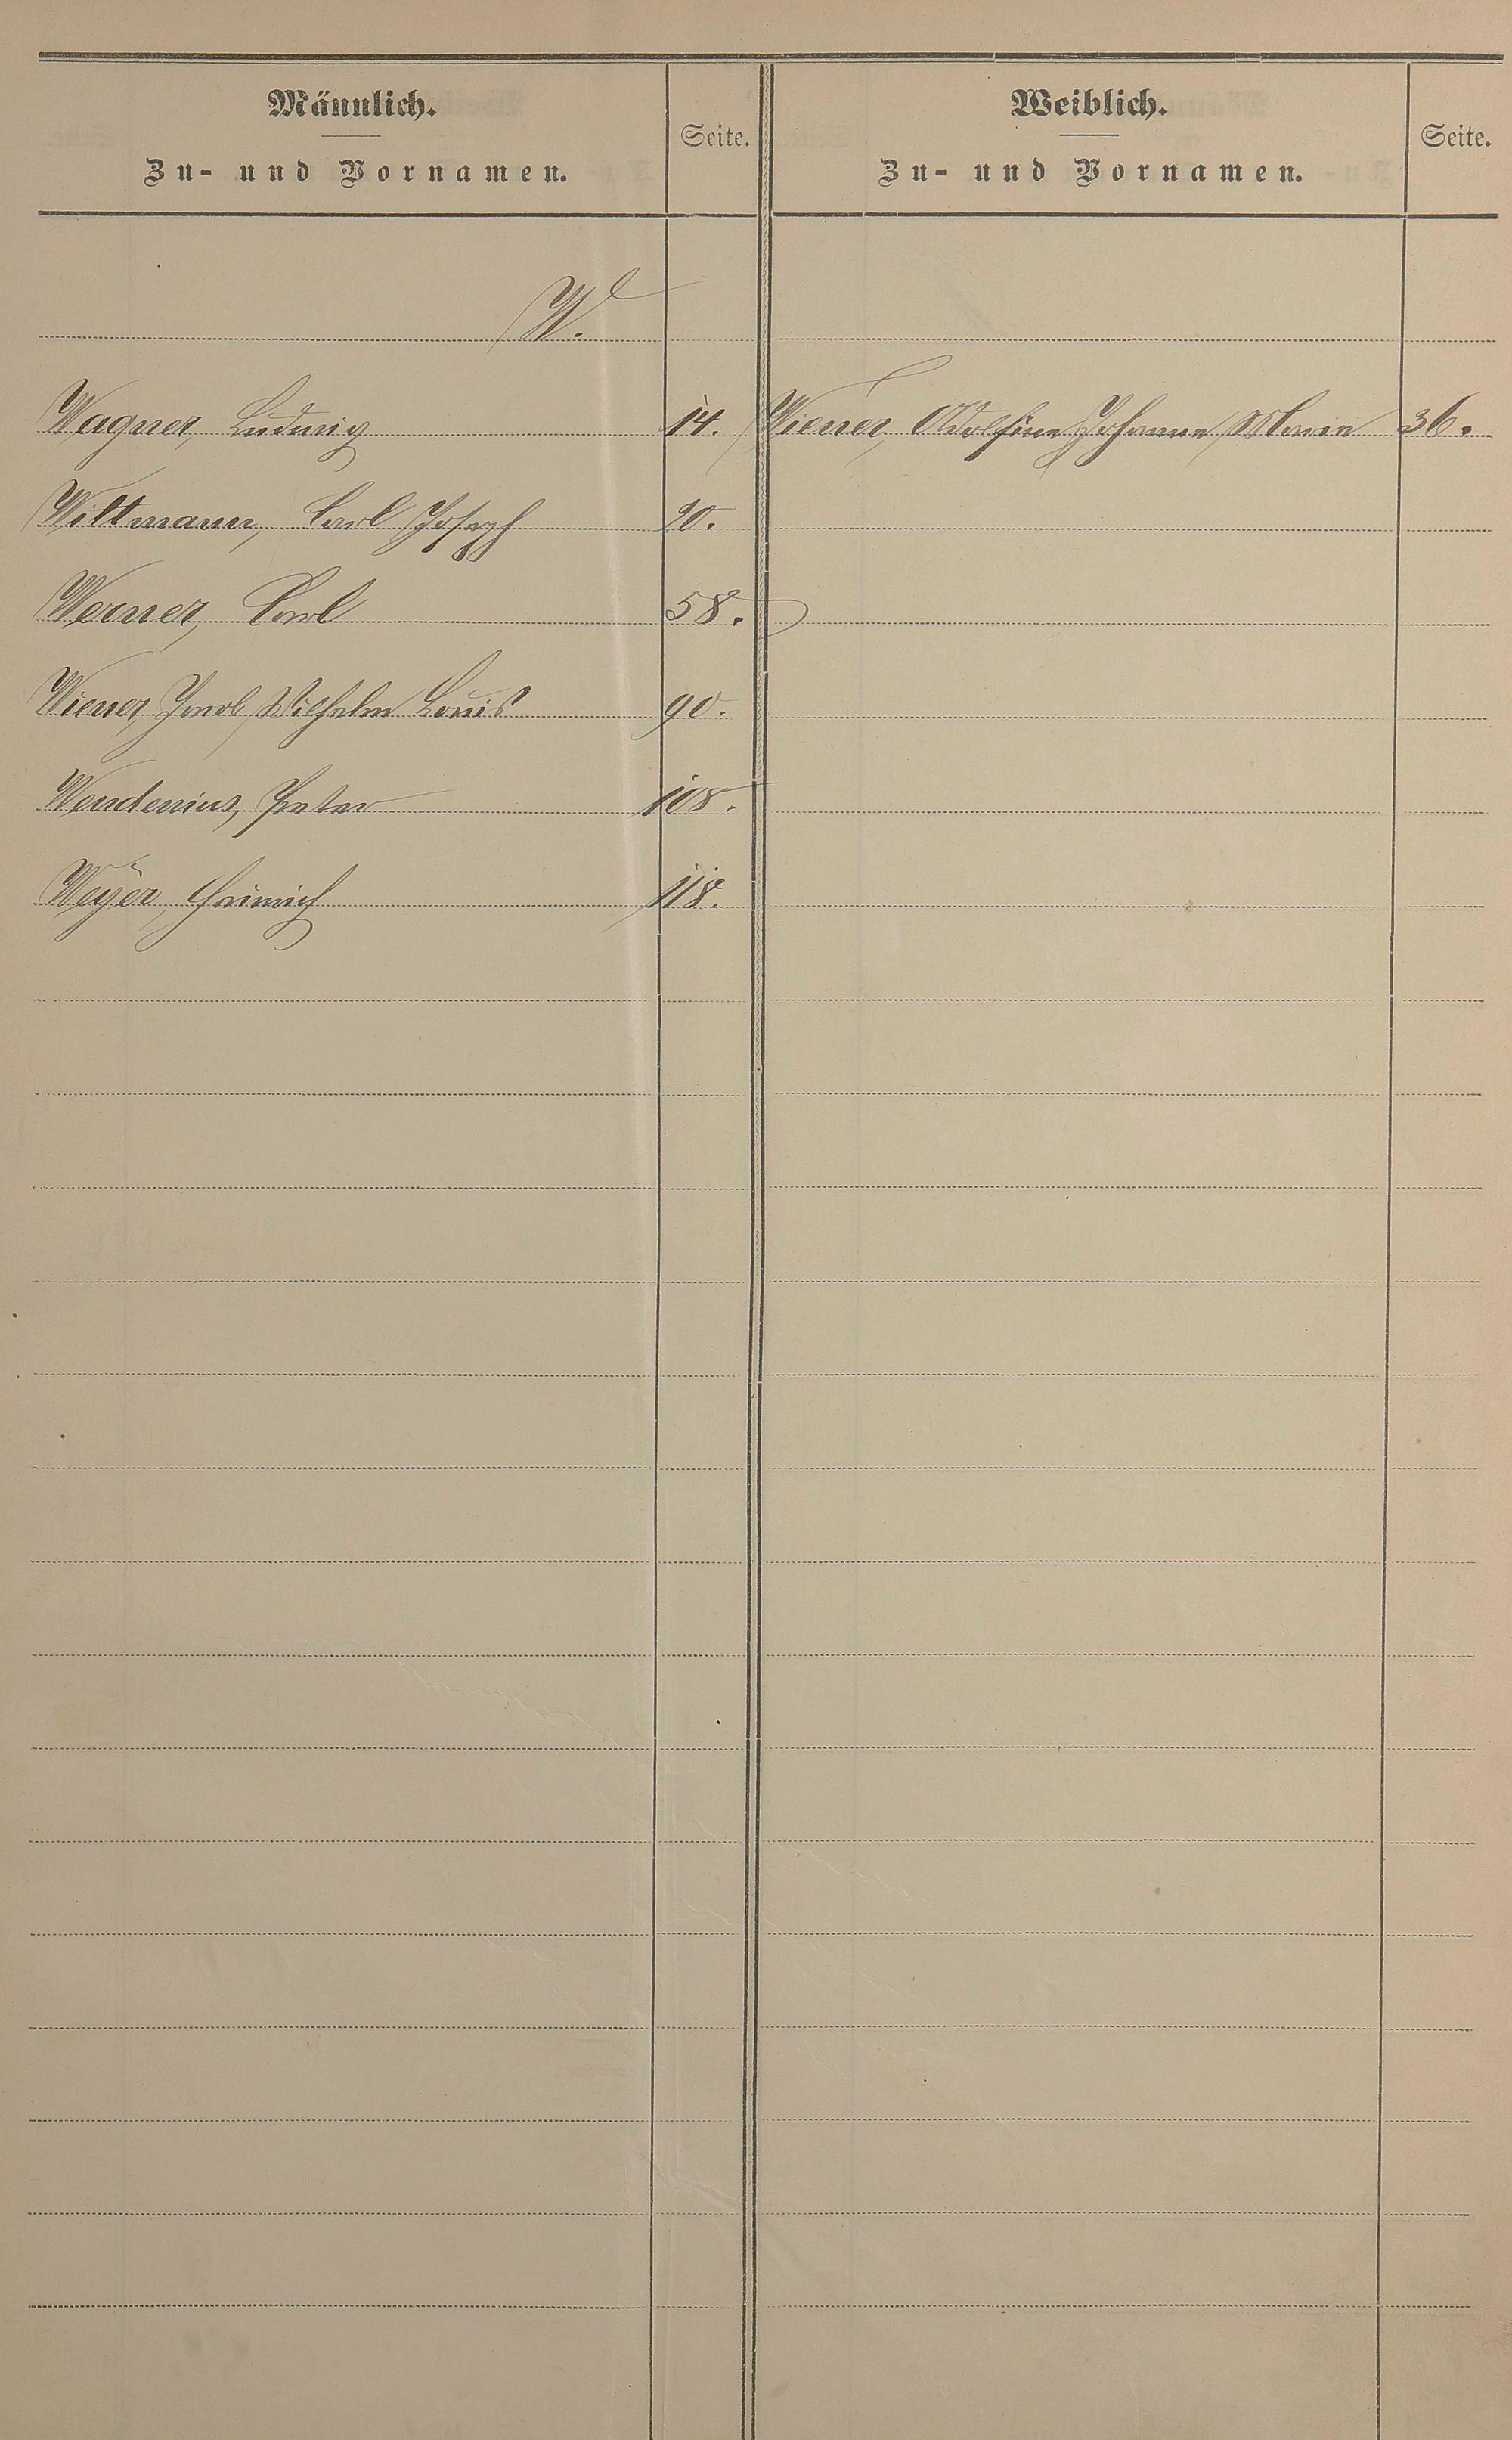 Männlich.
Zu- und Vornamen.
Seite.
Weiblich.
Zu- und Vornamen.
Seite.
W.
Wagner, Ludwig 14. Wiener, Adolfine Johanne Marie 36.
Wittmann, Carl Joseph 20.
Werner, Carl 58.
Wiener, Wilhelm Louis 90.
Wendenius, Peter 108.
Weyer, Heinrich 118.